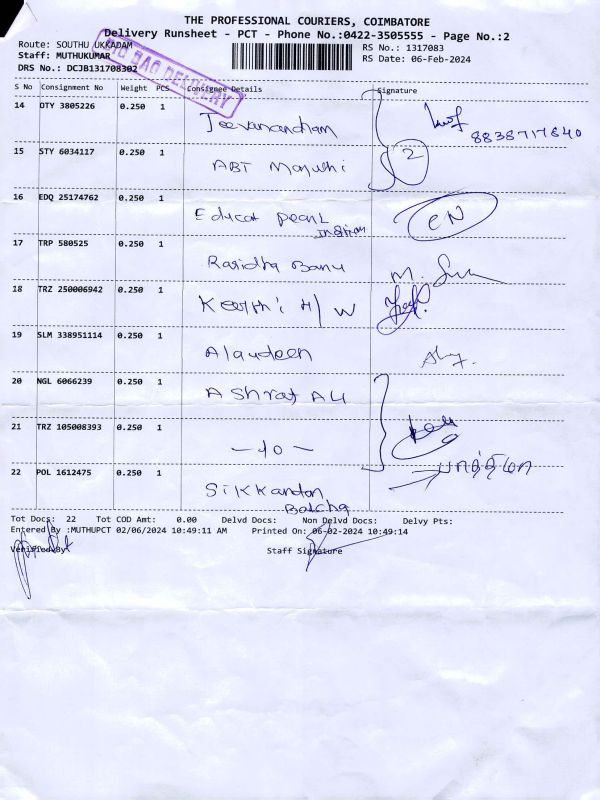 THE PROFESSIONAL COURIERS, COIMBATORE
Delivery Runsheet - PCT - Phone No.:0422-3505555 - Page No.:2
Route: SOUTHU UKKADAM
RS No.: 1317083
Staff: MUTHUKUMAR
RS Date: 06-Feb-2024
DRS No.: DCJB131708302
BAG DELIVERY
S No Consignment No Weight PCS Consignee Details Signature
14 DTY 3805226 0.250 1 Jeevanandham
8838717640
15 STY 6034117 0.250 1 ABT Maruthi 2
16 EDQ 25174762 0.250 1 Educat pearl
17 TRP 580525 0.250 1 Rasidha Banu
18 TRZ 250006942 0.250 1 Keerthi H/W
19 SLM 338951114 0.250 1 Alaudeen
20 NGL 6066239 0.250 1 Ashraf Ali
21 TRZ 105008393 0.250 1 —10—
22 POL 1612475 0.250 1 Sikkandar
Batcha
Tot Docs: 22 Tot COD Amt: 0.00 Delvd Docs: Non Delvd Docs: Delvy Pts:
Entered By :MUTHUPCT 02/06/2024 10:49:11 AM Printed On: 06-02-2024 10:49:14
Verified By Staff Signature